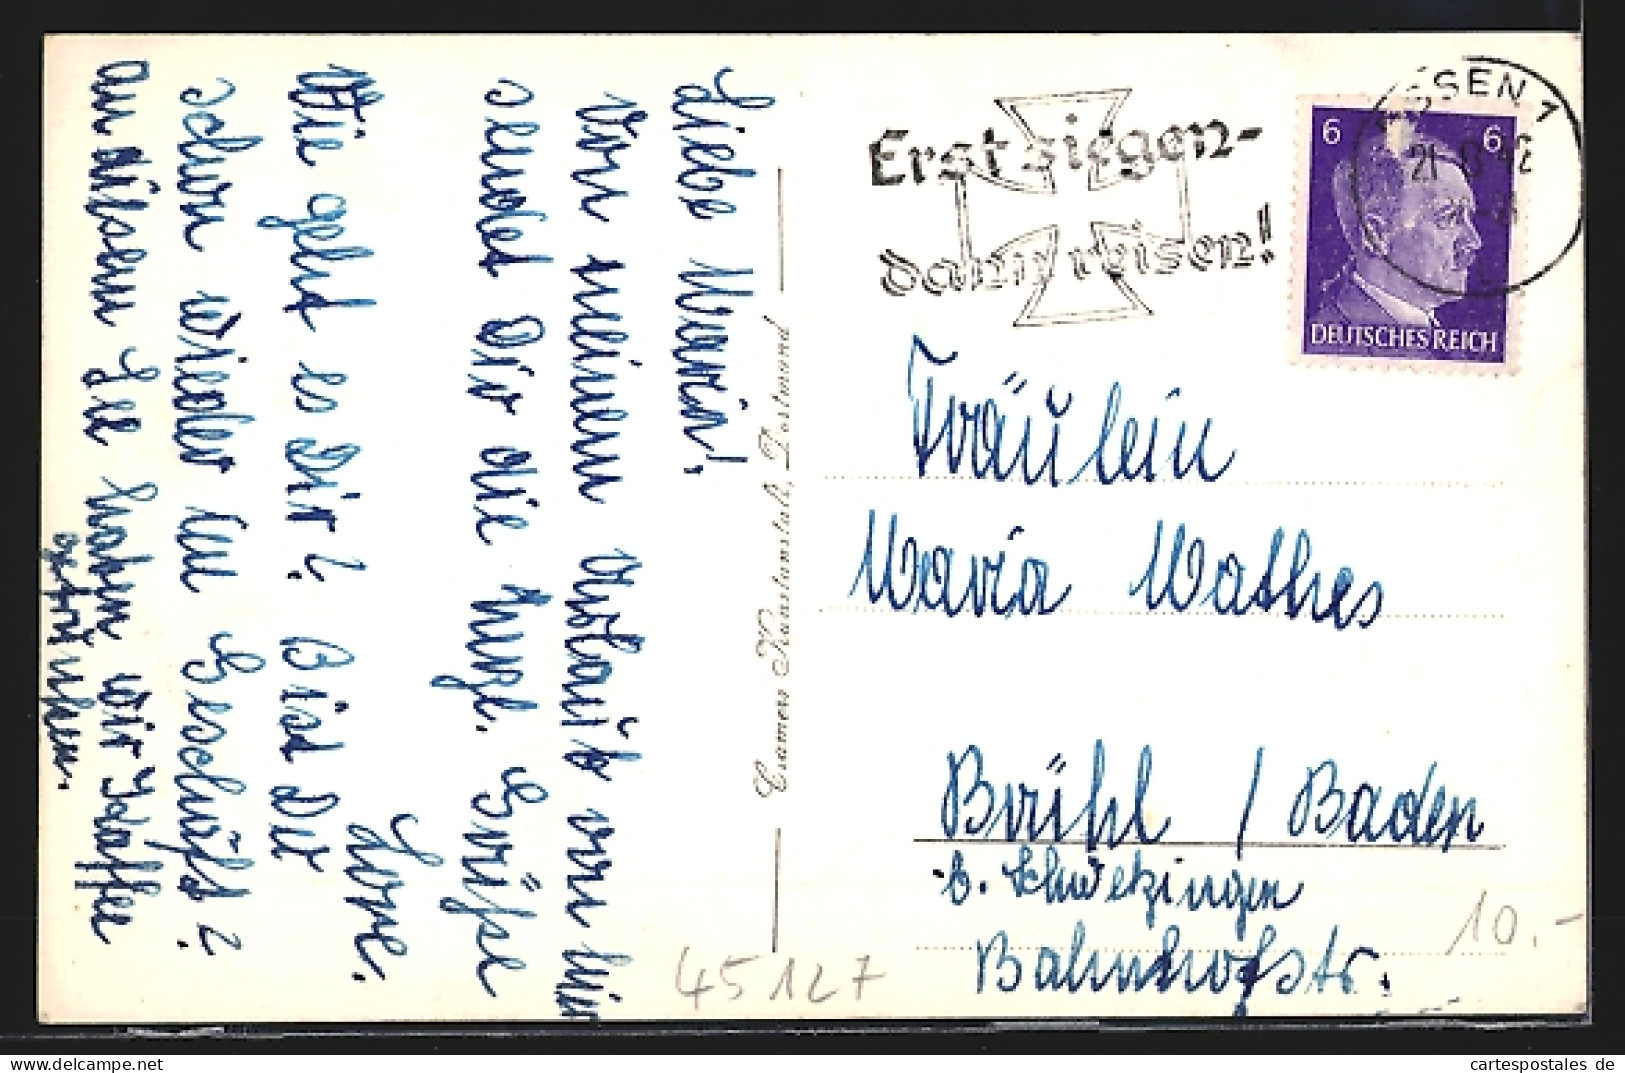 Liebe Maria!
Von meinem Urlaub von hier
sendet Dir die herzl. Grüsse
Lore.
Wie geht es Dir? Bist Du
schon wieder im Geschäft?
am blauen See haben wir Kaffee
getrunken.
Cramers Kunstanstalt, Dortmund
Erst siegen-
dann reisen!
ESSEN 1
6 6
DEUTSCHES REICH
Fräulein
Maria Mathes
Brühl / Baden
b. Schwetzingen
Bahnhofstr.
45127
10.-
cartespostales de